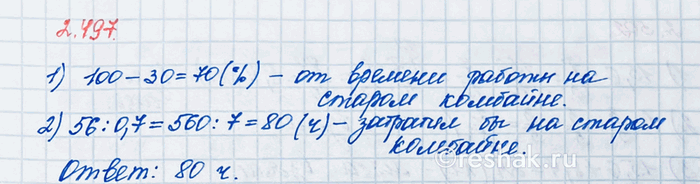 2.497.
1) 100 - 30 = 70 (%) - от времени работы на
старом комбайне.
2) 56 : 0,7 = 560 : 7 = 80 (ч) - затратил бы на старом
комбайне.
Ответ: 80 ч.
reshak.ru